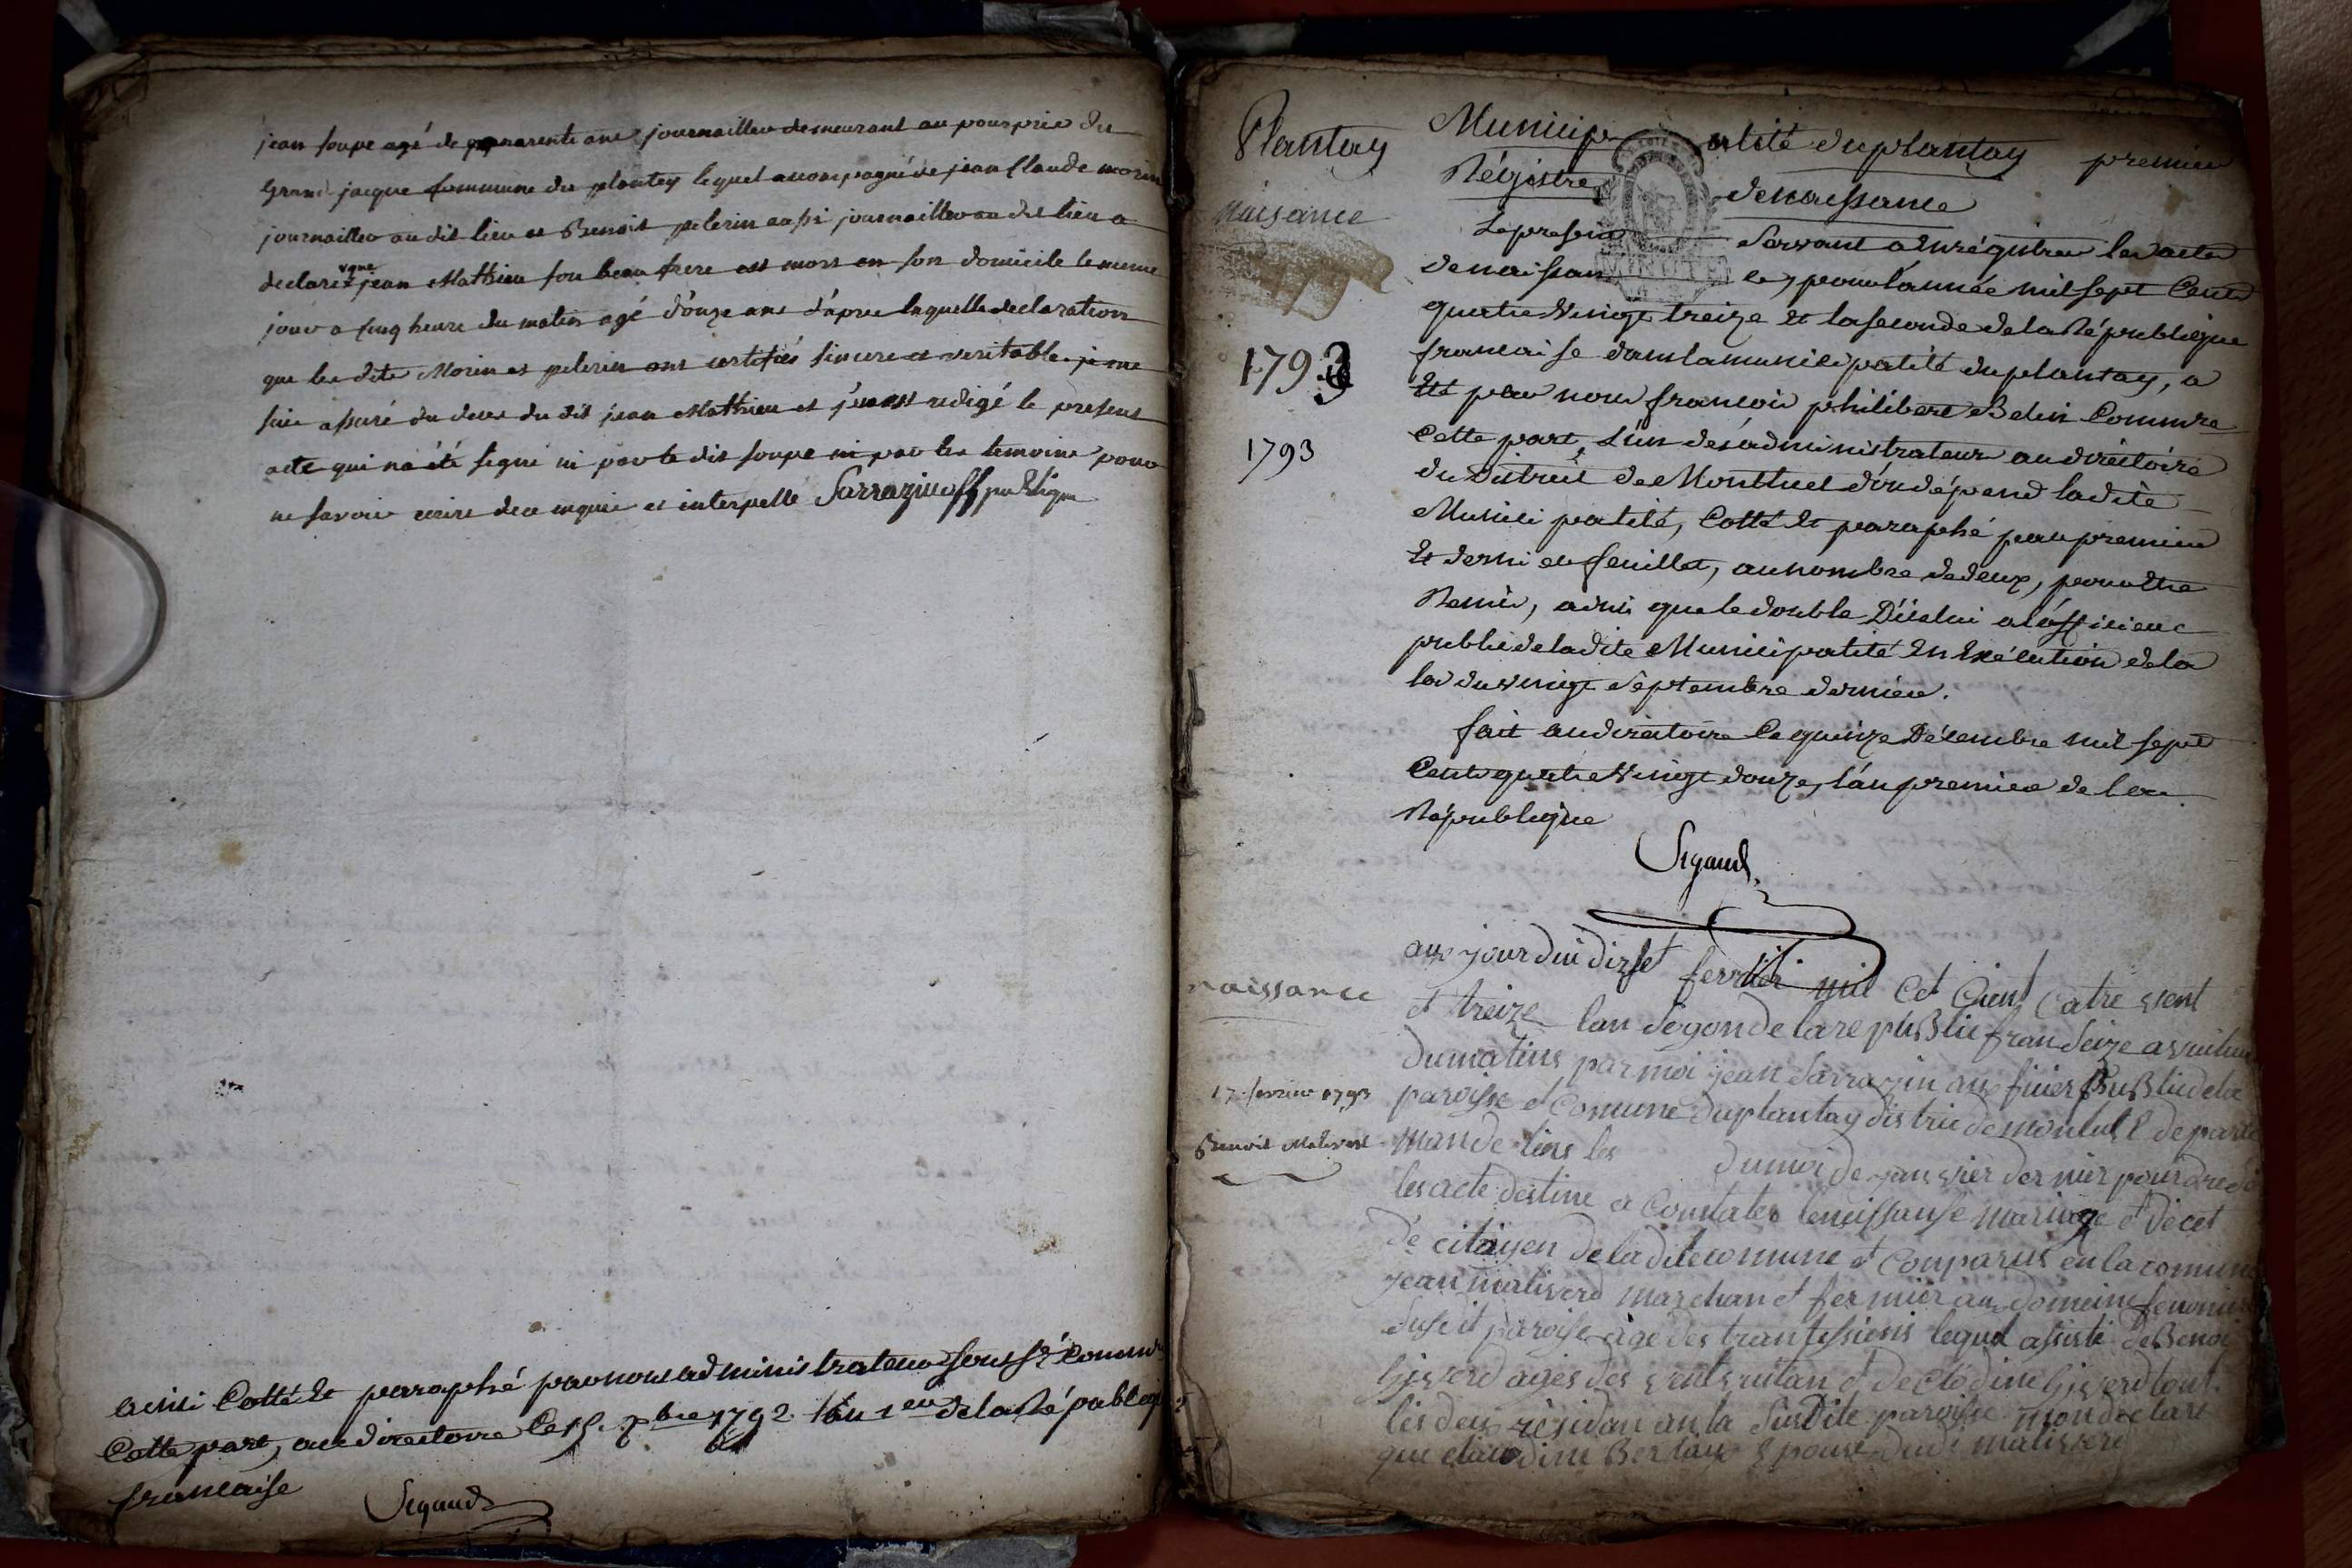 jean soupe agé de quarente ans journaillier demeurant au pourprie du
Grand jacque commune du plantey lequel acompagné de jean Claude morin
journaillier au dit lieu et Benoit pelerin aussi journaillier au dit lieu a
declaré que jean Mathieu son beau frere est mort en son domicile le meme
jour a sinq heure du matin agé d'onze ans d'apres laquelle declaration
que les dits Morin et pelerin ont certifiés sincere et veritable je me
suis assuré du deces du dit jean Mathieu et j'en ai redigé le present
acte qui na été signé ni par le dit soupe ni par les temoins pour
ne savoir ecrire de ce enquis et interpellé Sarrazin off publique
ainsi Cotté et paraphé par nous administrateur soussé. Commre
Cette part, au directoire le 15. Xbre 1792 l'an 1er de la Républiq
francaise
Sigaud
Plantay
Municip alité du plantay premier
Régistre de naissance
naisance
Le present Servant a Enrégistrer les actes
de naissan ces, pour l'année mil sept Cents
quatre Vingt treize et la seconde de la République
francaise dans la municipalité du plantay, a
Eté par nous francois philibert Belin Commre
1793
Cette part, L'un des administrateurs au directoire
1793
du District de Montluel d'ou dépend la dite
Municipalité, Cotté et paraphé par premier
et dernier feuillet, au nombre de deux, pour Etre
Remis, ainsi que le double D'icelui a l'officier
public de la dite Municipalité En Exécution de la
loi du Vingt septembre dernier.
fait au directoire le quinze Décembre mil sept
Cents quatre Vingt douze, l'an premier de la
République
Sigaud
naissance
aux jourdui dizset fevrier mil Cet Cient Catre vent
et treize lan segonde la re puBlic franseize a vuit eure
du matins par moi jean Sarrazin aux ficier PuBlic de la
17 fevrier 1793
paroisse et Comune du plantay distric de montuel departe
Benoit Maliverd
man de lins les du moi de janvier der nier pour dredé
les acte destine a Constater le neissanse mariage et decet
de citoyen de la dite comune et Conparus en la comune
jean maliverd marchan et fermier au domeine
susdit paroisse age des trante lequel asisté de Benoi
agés des vent vuitan et de clodine tout
les deu residan an la susdite paroisse mon declare
que claudine Epouse dudi maliverd